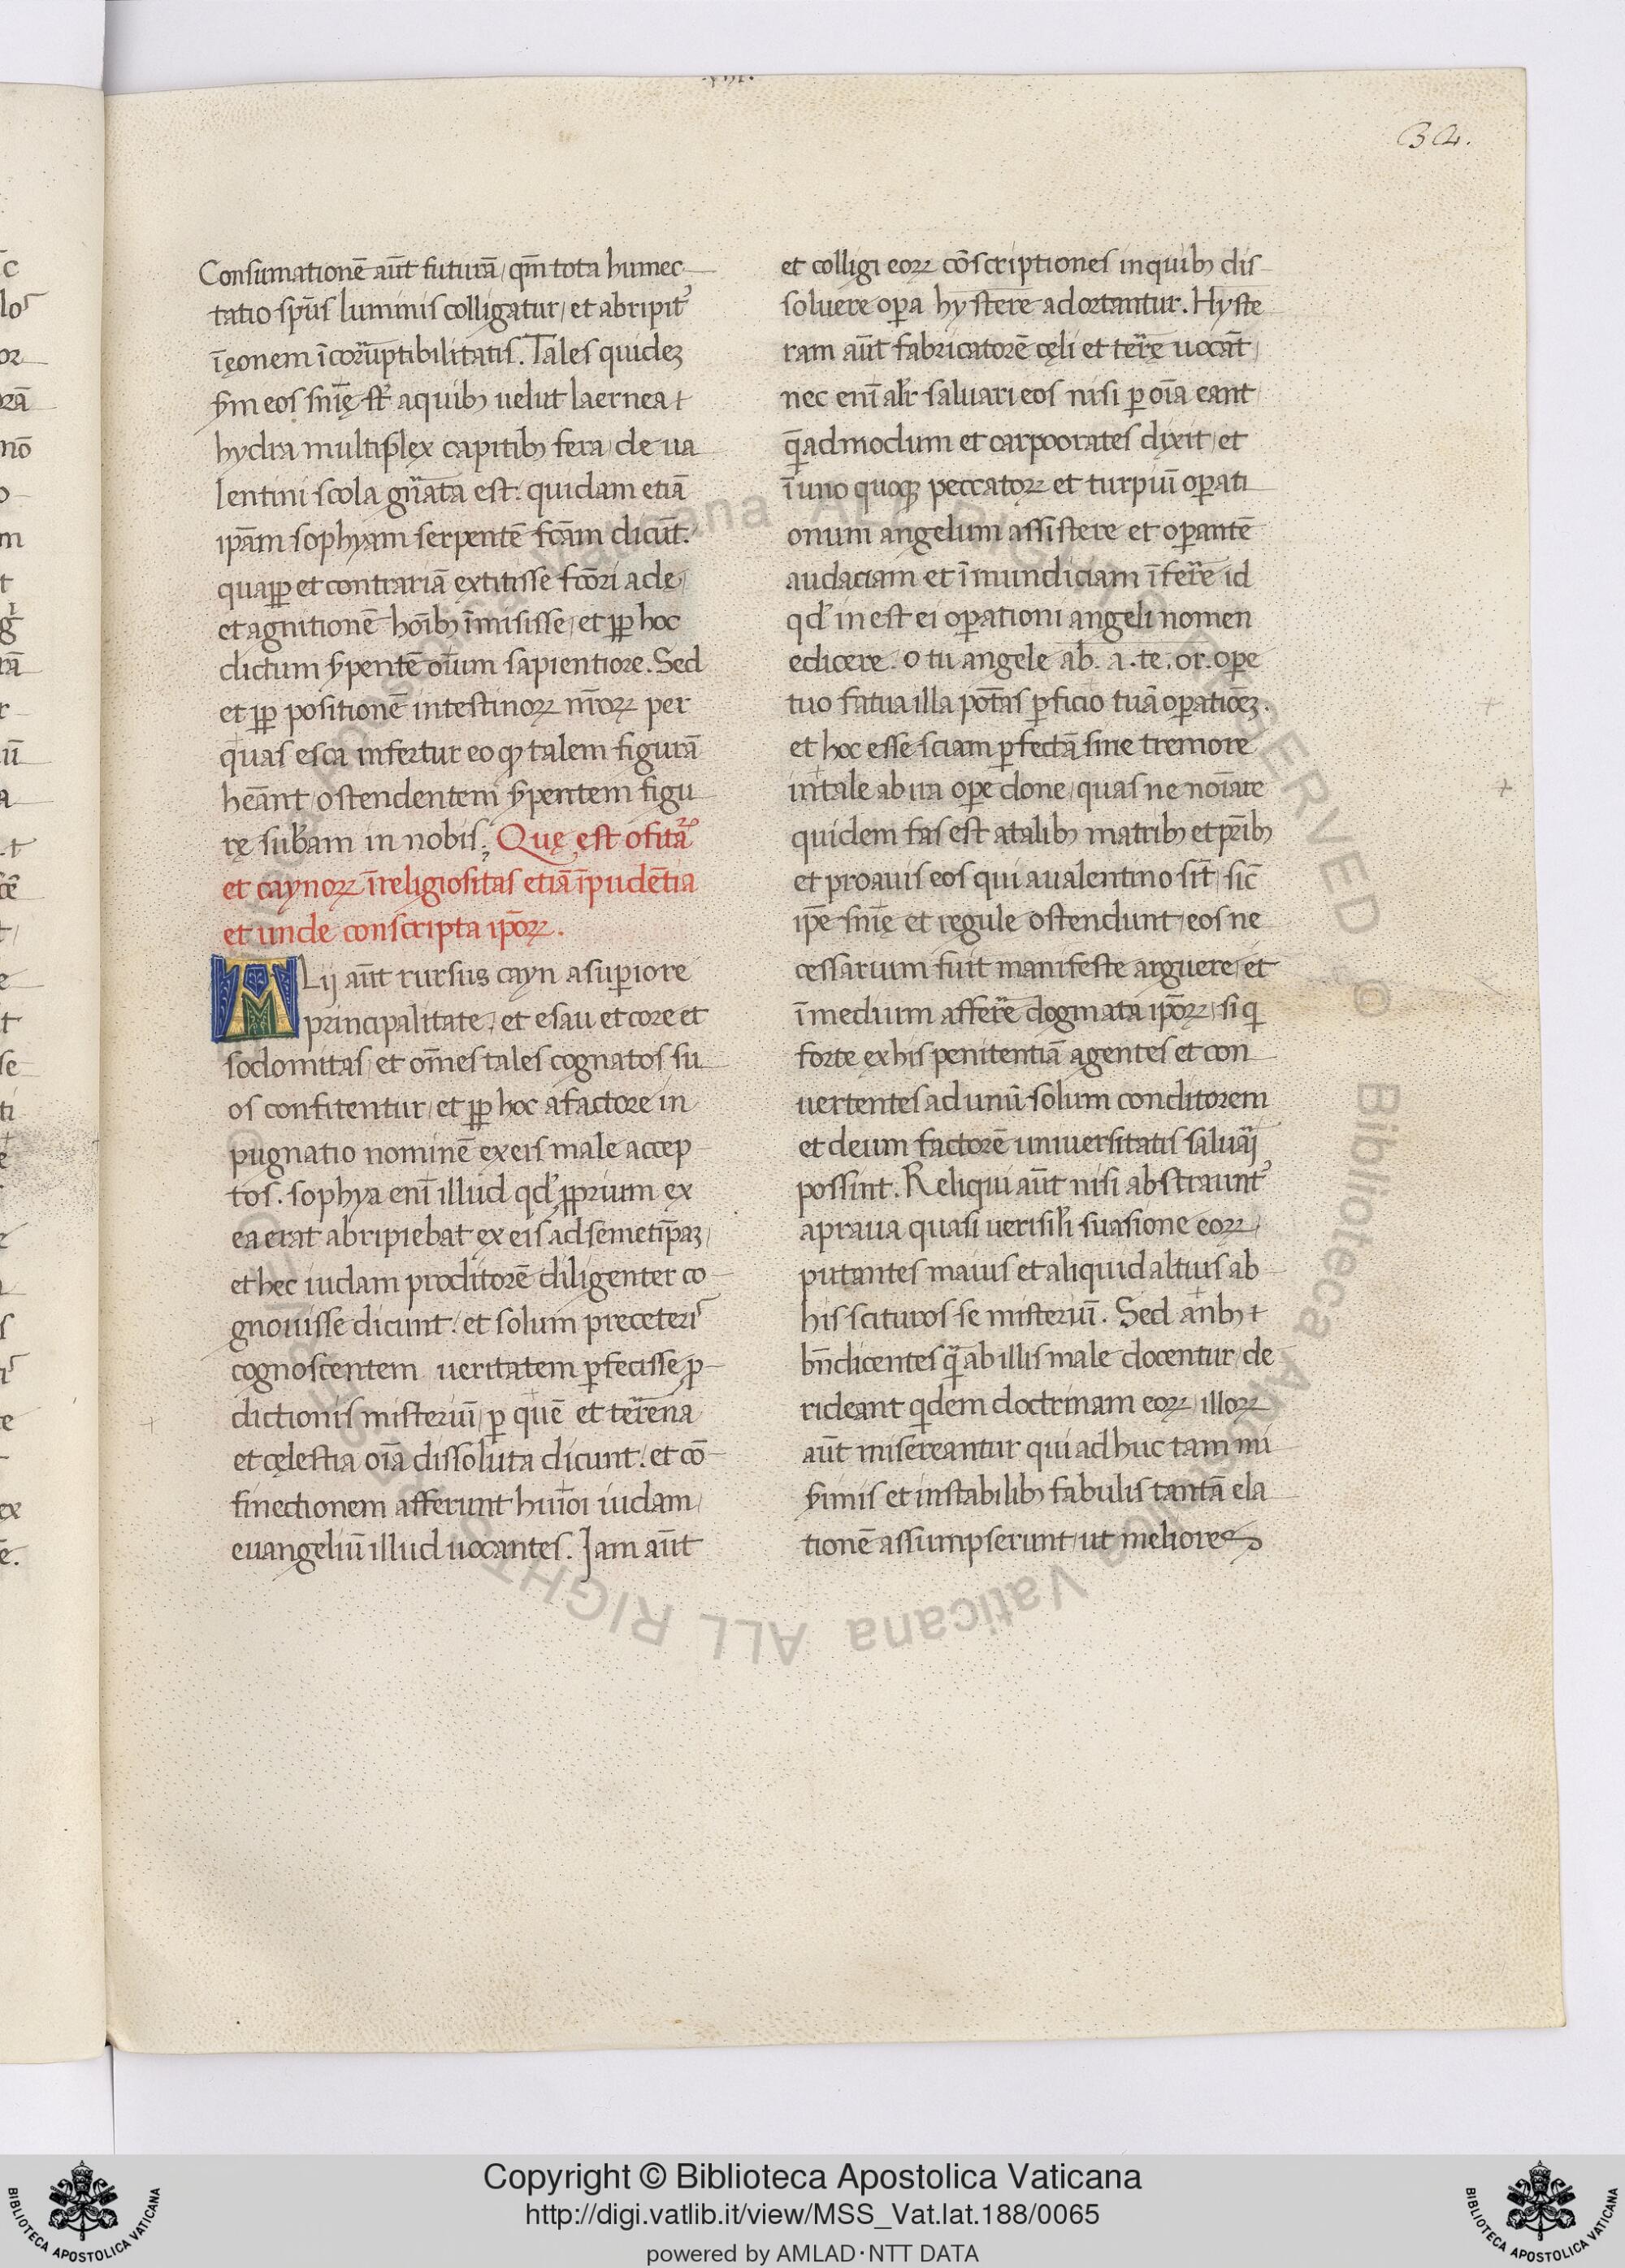 34.
Consumationē aūt futurā, qm̄ tota humec
tatio spūs luminis colligatur, et abripit᷑
ī ęonem īcorruptibilitatis. Tales quidez
s̄m eos sn̄ię st᷑ a quib; uelut laernea t
hydra multiplex capitib; fera, de ua
lentini scola gn̄ata est: quidam etiā
ip̄am sophyam serpentē fc̄am dicūt.
quaꝓp et contrariā extitisse fc̄ori ade,
et agnitionē hoīb; īmisisse, et ꝓp hoc
dictum s̄pentē oīum sapientiore. Sed
et ꝓp positionē intestinoꝝ nr̄oꝝ per
quas esca infertur eo ꝙ talem figurā
heānt, ostendentem s̄pentem figu
rę sub̄am in nobis; Quę est ofitaꝝ
et caynoꝝ īreligiositas etiā īpudētia
et unde conscripta ip̄oꝝ.
ALij aūt rursus cayn a sup̱iore
principalitate, et esau et core et
sodomitas, et om̄es tales cognatos su
os confitentur, et ꝓp hoc a factore in
pugnatio nominē ex eis male accep
tos. sophya enī illud qd᷑ ꝓprium ex
ea erat abripiebat ex eis ad semetip̄aꝫ,
et hec iudam proditorē diligenter co
gnouisse dicunt. et solum pre ceteris
cognoscentem ueritatem ꝑfecisse ꝓ
dictionis misteriū, ꝑ quē et terrena
et cęlestia oīa dissoluta dicunt. et cō
finectionem afferunt huīoi iudam,
euangeliū illud uocantes. Jam aūt
et colligi eoꝝ cōscriptiones in quib; dis
soluere oꝑa hystere adortantur. Hyste
ram aūt fabricatorē cęli et terrę uocāt,
nec enī alr̄ saluari eos nisi ꝑ oīa eant
q̄admodum et carpocrates dixit, et
ī uno quoqꝫ peccatoꝝ et turpiū oꝑati
onum angelum assistere et oꝑantē
audaciam et īmundiciam īferre id
qd᷑ inest ei oꝑationi angeli nomen
edicere. o tu angele ab. a. te. or. oꝑe
tuo fatua illa potās ꝑficio tuā oꝑatiōez.
et hoc esse sciam ꝑfectā sine tremore
in tale ab ira oꝑe done, quas ne noīare
quidem fas est a talib; matrib; et pr̄ib;
et proauis eos qui a ualentino sīt, sic̄
ip̄e sn̄ię et regule ostendunt, eos ne
cessarium fuit manifeste arguere, et
ī medium afferre dogmata ip̄oꝝ, si q
forte ex his penitentiā agentes et con
uertentes ad unū solum conditorem
et deum factorē uniuersitatis saluari
possint. Reliqui aūt nisi abstraunt᷑
a praua quasi uerisili suasione eoꝝ,
putantes maius et aliquid altius ab
his scituros se misteriū. Sed a nb; t
bn̄dicentes q̄ ab illis male docentur, de
rideant qdem doctrinam eoꝝ, illoꝝ
aūt misereantur qui adhuc tam mi
s̄imis et instabilib; fabulis tantā ela
tionē assumpserunt, ut meliores
Copyright © Biblioteca Apostolica Vaticana
http://digi.vatlib.it/view/MSS_Vat.lat.188/0065
powered by AMLAD·NTT DATA